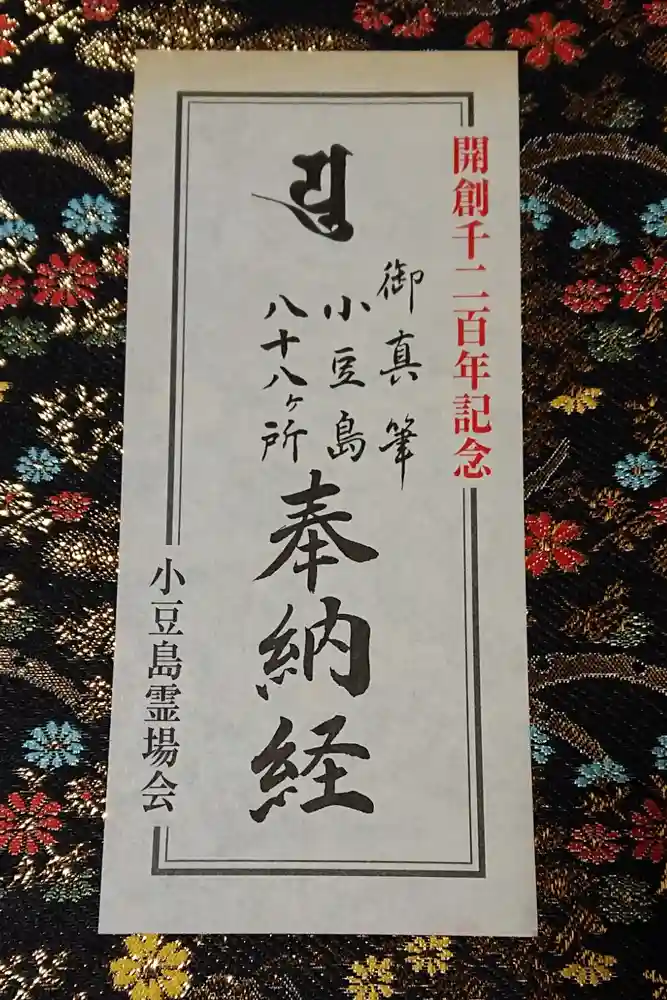 開創千二百年記念
御真筆
小豆島
八十八ヶ所
奉納経
小豆島霊場会